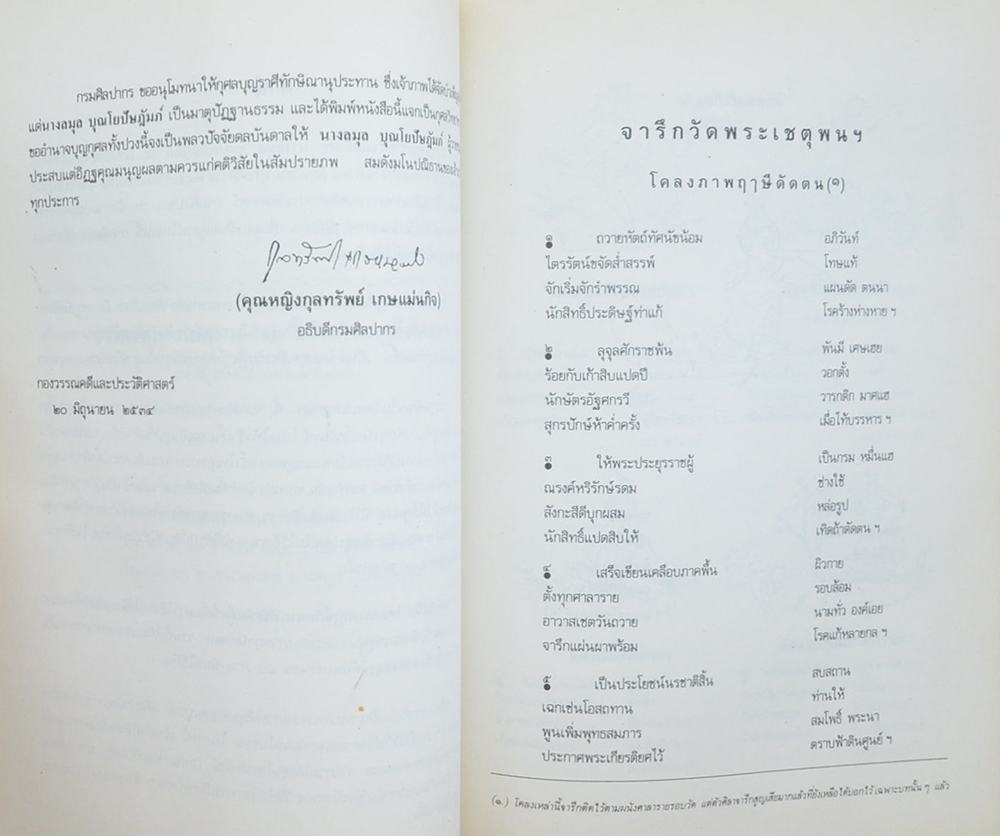 กรมศิลปากร ขออนุโมทนาให้กุศลบุญราศีทักษิณานุประทาน ซึ่งเจ้าภาพได้จัดบำเพ็ญ
แด่นางลมุล บุณโยปัษฎัมภ์ เป็นมาตุปัฏฐานธรรม และได้พิมพ์หนังสือนี้แจกเป็นกุศล
ขออำนาจบุญกุศลทั้งปวงนี้จงเป็นพลวปัจจัยดลบันดาลให้ นางลมุล บุณโยปัษฎัมภ์
ประสบแต่อิฏฐคุณมนุญผลตามควรแก่คติวิสัยในสัมปรายภพ สมดังมโนปณิธานของ
ทุกประการ
(คุณหญิงกุลทรัพย์ เกษแม่นกิจ)
อธิบดีกรมศิลปากร
กองวรรณคดีและประวัติศาสตร์
๒๐ มิถุนายน ๒๕๓๔
จารึกวัดพระเชตุพนฯ
โคลงภาพฤๅษีดัดตน(๑)
๑ ถวายหัตถ์ทัศนัขน้อม อภิวันท์
ไตรรัตน์ขจัดส่ำสรรพ์ โทษแท้
จักเริ่มจักรำพรรณ แผนดัด ตนนา
นักสิทธิ์ประดิษฐ์ท่าแก้ โรคร้างห่างหาย ฯ
๒ ลุจุลศักราชพ้น พันมี เศษเฮย
ร้อยกับเก้าสิบแปดปี วอกตั้ง
นักษัตรอัฐศกรวี วารกติก มาศแฮ
สุกรปักษ์ห้าค่ำครั้ง เมื่อไท้บรรหาร ฯ
๓ ให้พระประยุรราชผู้ เป็นกรม หมื่นแฮ
ณรงค์หริรักษ์รดม ช่างใช้
สังกะสีดีบุกผสม หล่อรูป
นักสิทธิ์แปดสิบให้ เทิดถ้าดัดตน ฯ
๔ เสร็จเขียนเคลือบภาคพื้น ผิวกาย
ตั้งทุกศาลาราย รอบล้อม
อาวาสเชตวันถวาย นามทั่ว องค์เอย
จารึกแผ่นผาพร้อม โรคแก้หลายกล ฯ
๕ เป็นประโยชน์นรชาติสิ้น สบสถาน
เฉกเช่นโอสถทาน ท่านให้
พูนเพิ่มพุทธสมภาร สมโพธิ์ พระนา
ประกาศพระเกียรติยศไว้ ตราบฟ้าดินศูนย์ ฯ
(๑.) โคลงเหล่านี้จารึกติดไว้ตามผนังศาลารายรอบวัด แต่ตัวศิลาจารึกสูญเสียมากแล้วที่ยังเหลือได้บอกไว้เฉพาะบทนั้นๆ แล้ว